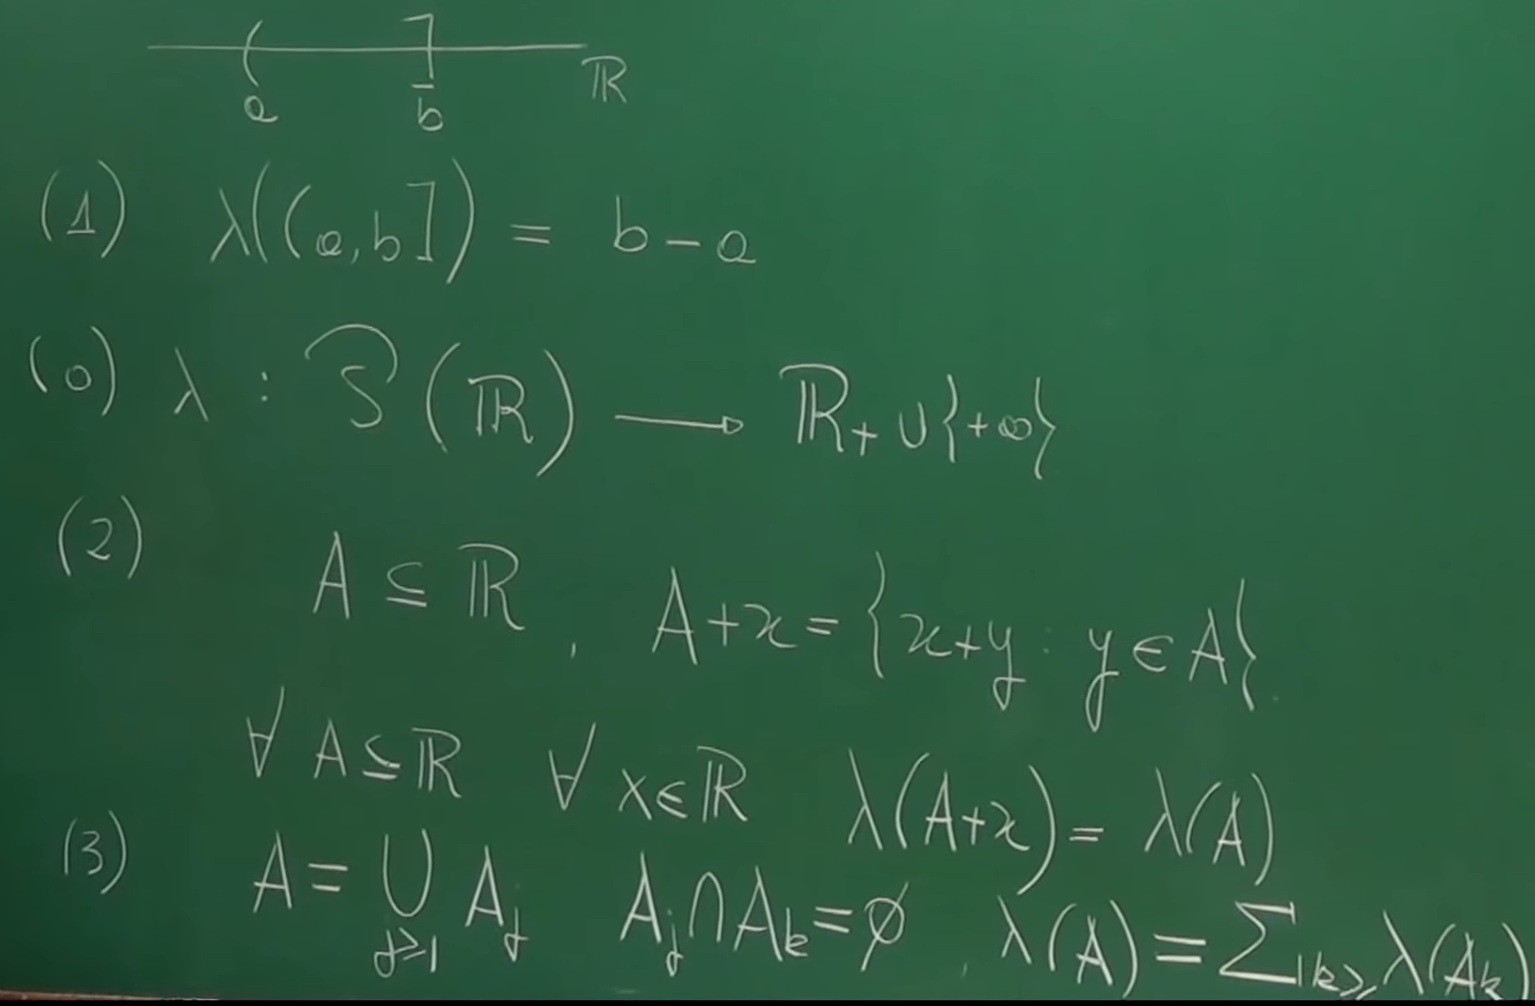 ( ]
a b ℝ
(1) λ((a,b]) = b-a
(0) λ : 𝒫(ℝ) → ℝ₊ ∪ {+∞}
(2) A ⊆ ℝ, A+x = {x+y : y ∈ A}.
∀ A ⊆ ℝ ∀ x ∈ ℝ λ(A+x) = λ(A)
(3) A = ⋃_{j≥1} A_j A_j ∩ A_k = ∅, λ(A) = ∑_{k≥1} λ(A_k)